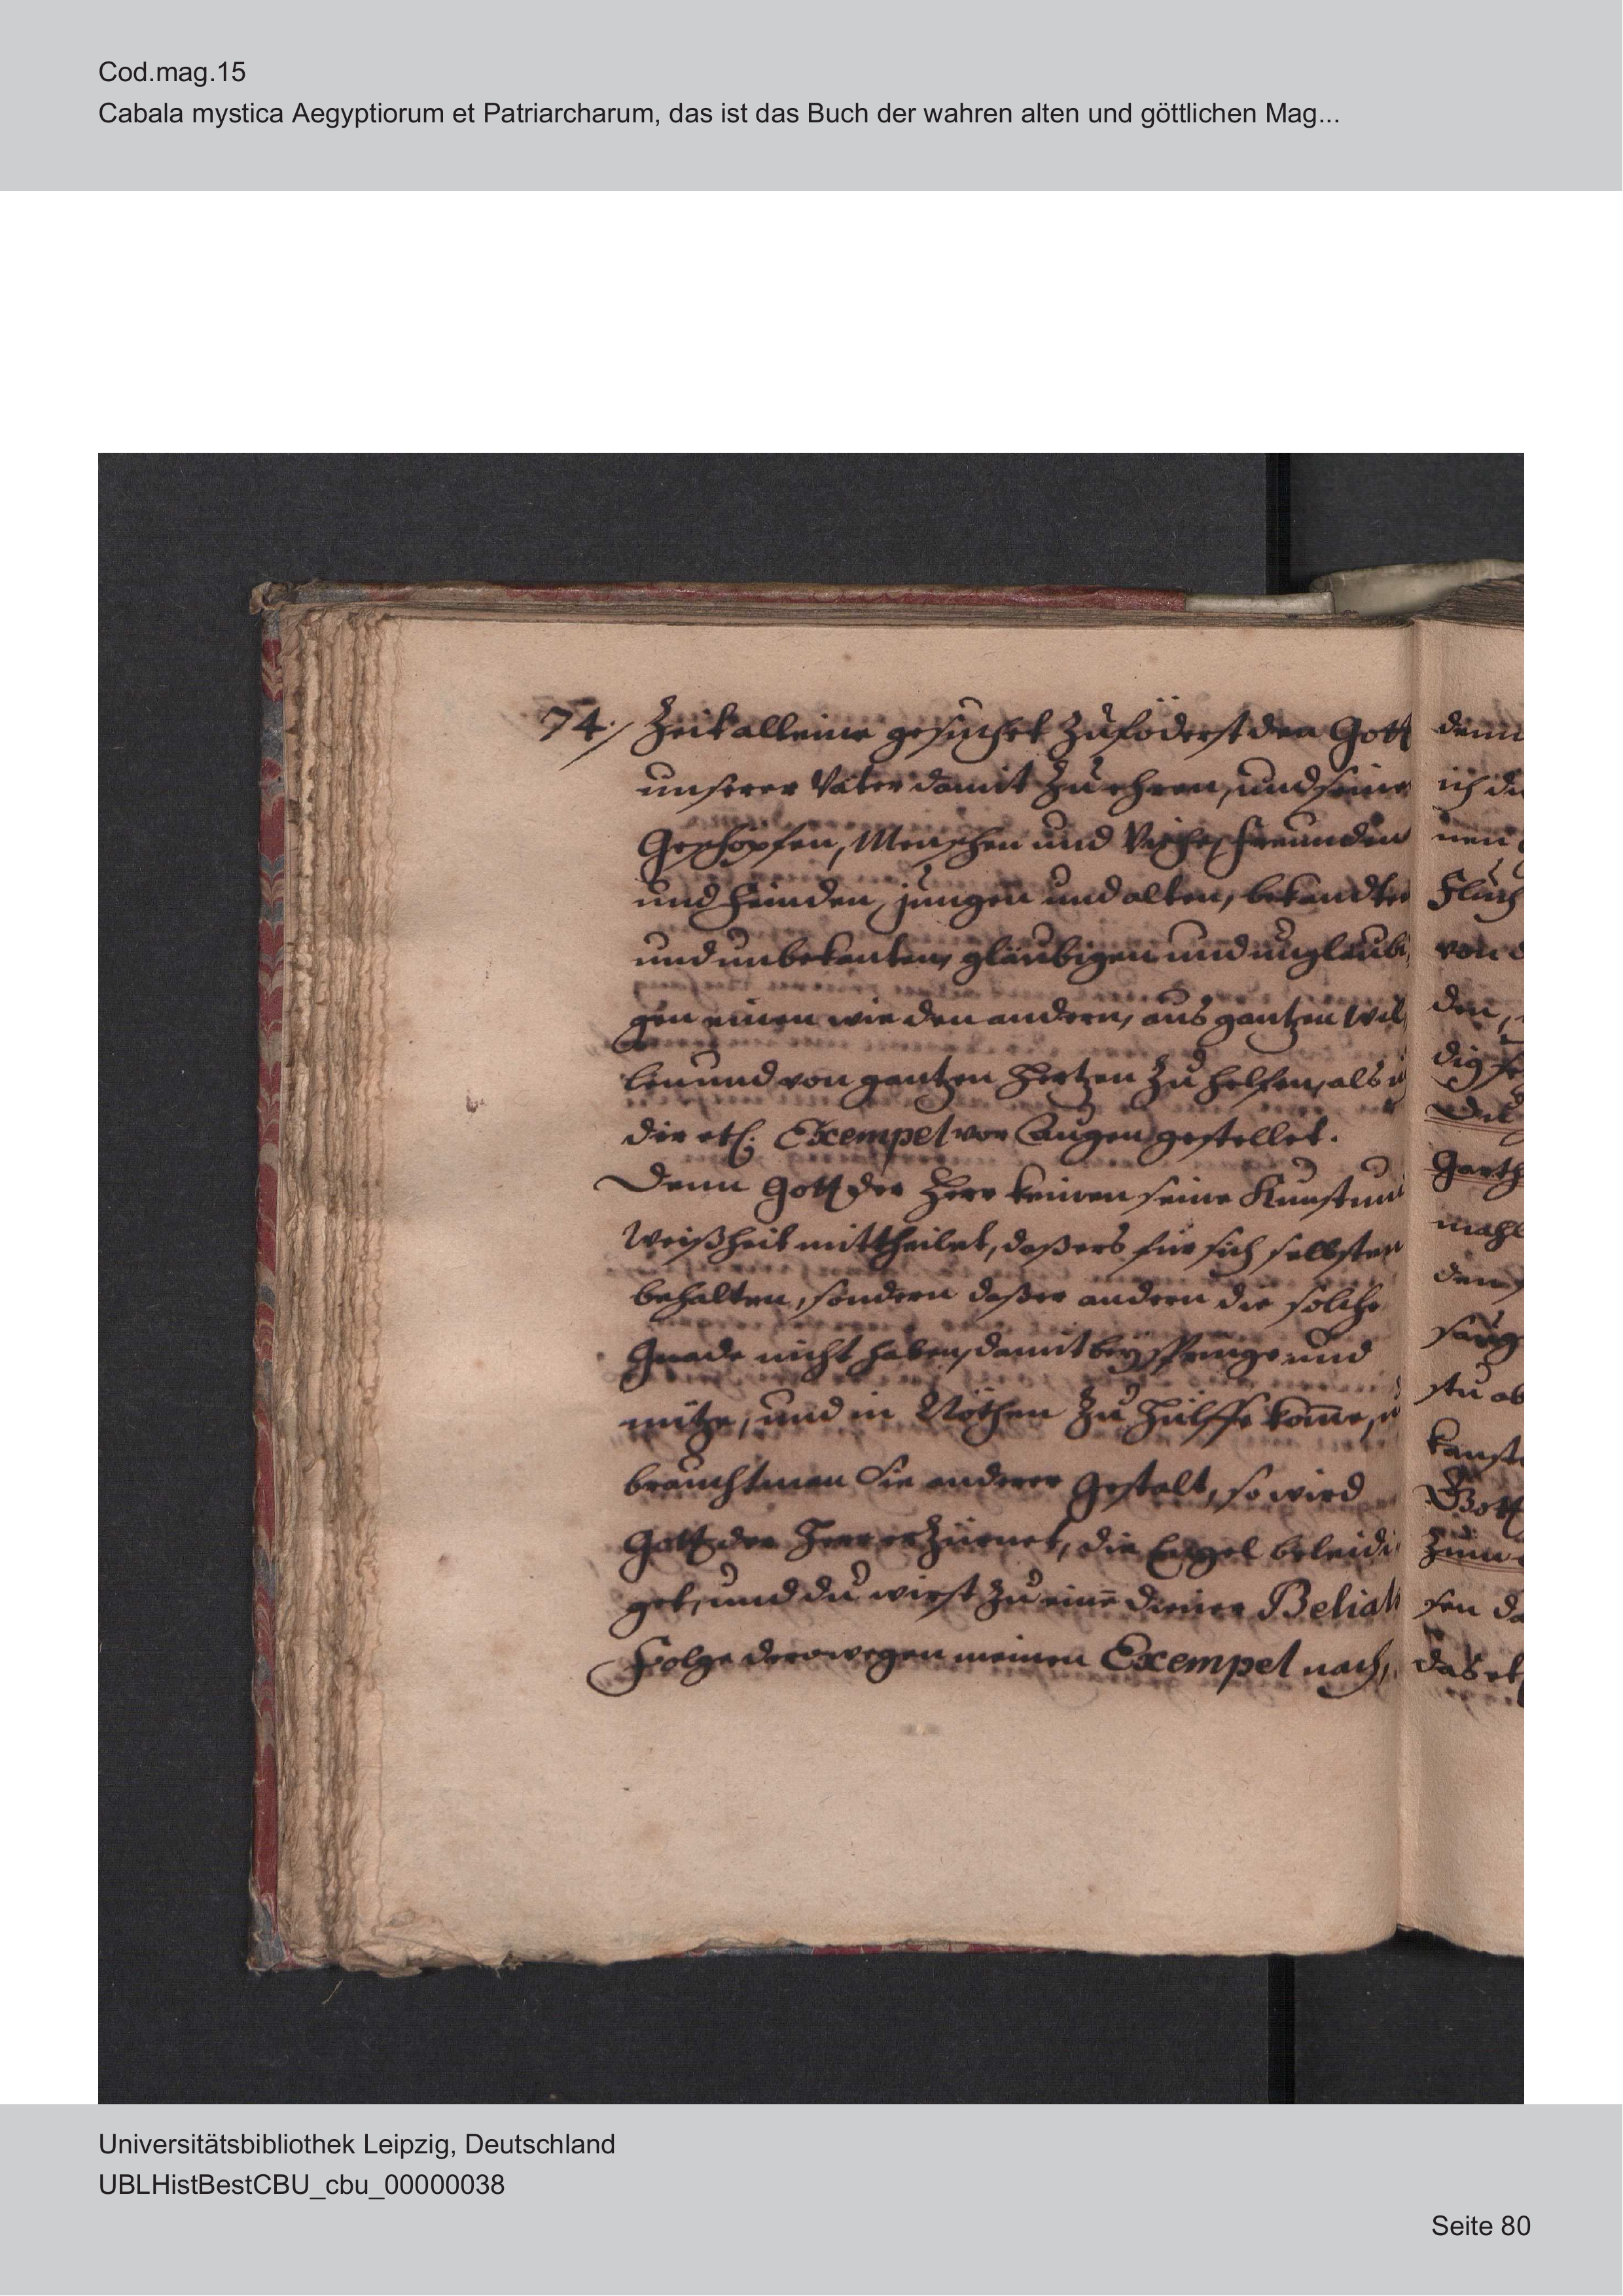 Cod.mag.15
Cabala mystica Aegyptiorum et Patriarcharum, das ist das Buch der wahren alten und göttlichen Mag...
74./ Zeit alleine gesuchet zuföderst den Gott
unserer Väter damit zu ehren, und seine
Geschöpfen, Menschen und Viehe, freunden
und feinden, jungen und alten, bekandten
und unbekanten, gläubigen und ungläubi
gen einen wie den andern, aus gantzen wil
len und von gantzen Hertzen zu helfen, als
dir etl. Exempel vor Augen gestellet.
Denn Gott der Herr keinen seine Kunst und
Weißheit mittheilet, daß ers für sich selbsten
behalten, sondern daß er andern die solche
Gnade nicht haben, damit beyspringe und
nütze, und in Nöthen zu hülffe kom̄e,
braucht man Sie anderer gestalt, so wird
Gott der Herr erzürnet, die Engel beleidi
get, und du wirst zu einē diener Belials
Folge derowegen meinen Exempel nach,
denn
ich
nen
Fluch
von
den,
dig
mahl
den
stu
Gott
das
Universitätsbibliothek Leipzig, Deutschland
UBLHistBestCBU_cbu_00000038
Seite 80